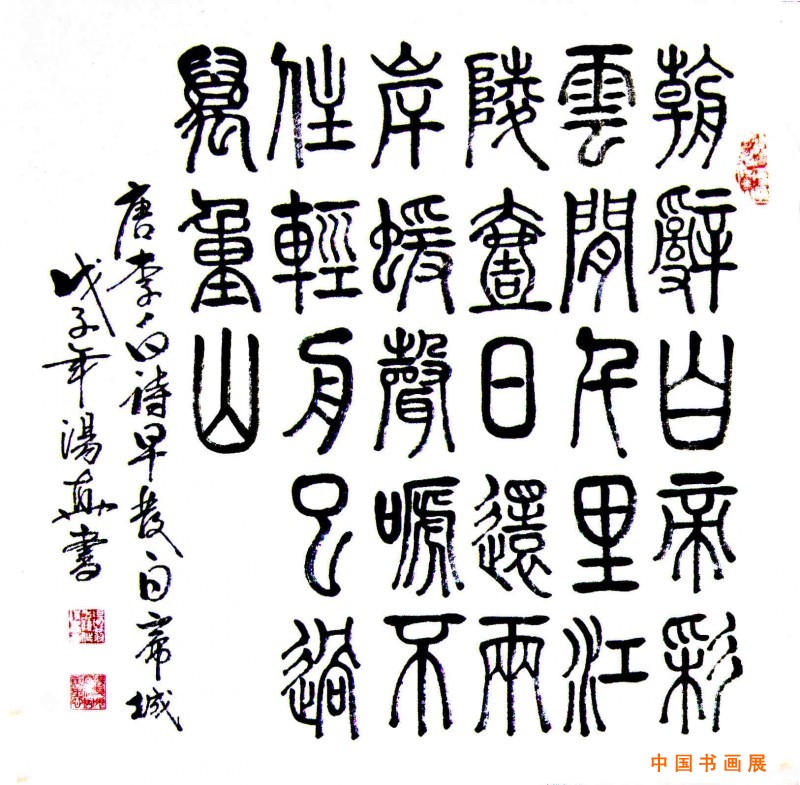 朝辭白帝彩
雲間千里江
陵壹日還兩
岸蝯聲嗁不
住輕舟已過
萬重山
唐李白詩早發白帝城
戊子年湯書
中国书画展